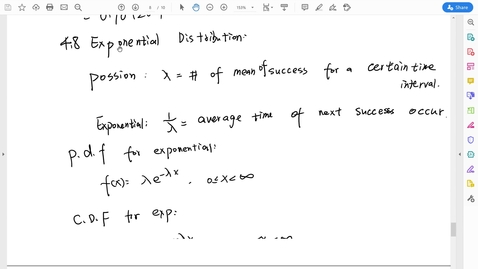 4.8 Exponential Distribution:
possion: λ = # of mean of success for a certain time
interval.
Exponential: 1/λ = average time of next success occur.
p.d.f for exponential:
f(x) = λe^-λx, 0≤x<∞
C.D.F for exp: